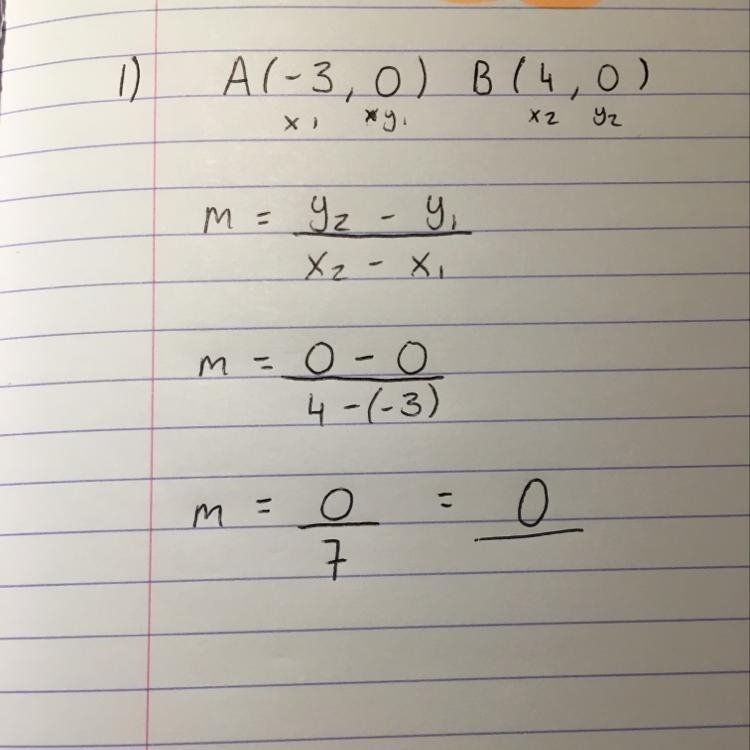 1) A(-3, 0) B(4, 0)
x1 y1 x2 y2
m = y2 - y1
x2 - x1
m = 0 - 0
4 -(-3)
m = 0 = 0
7